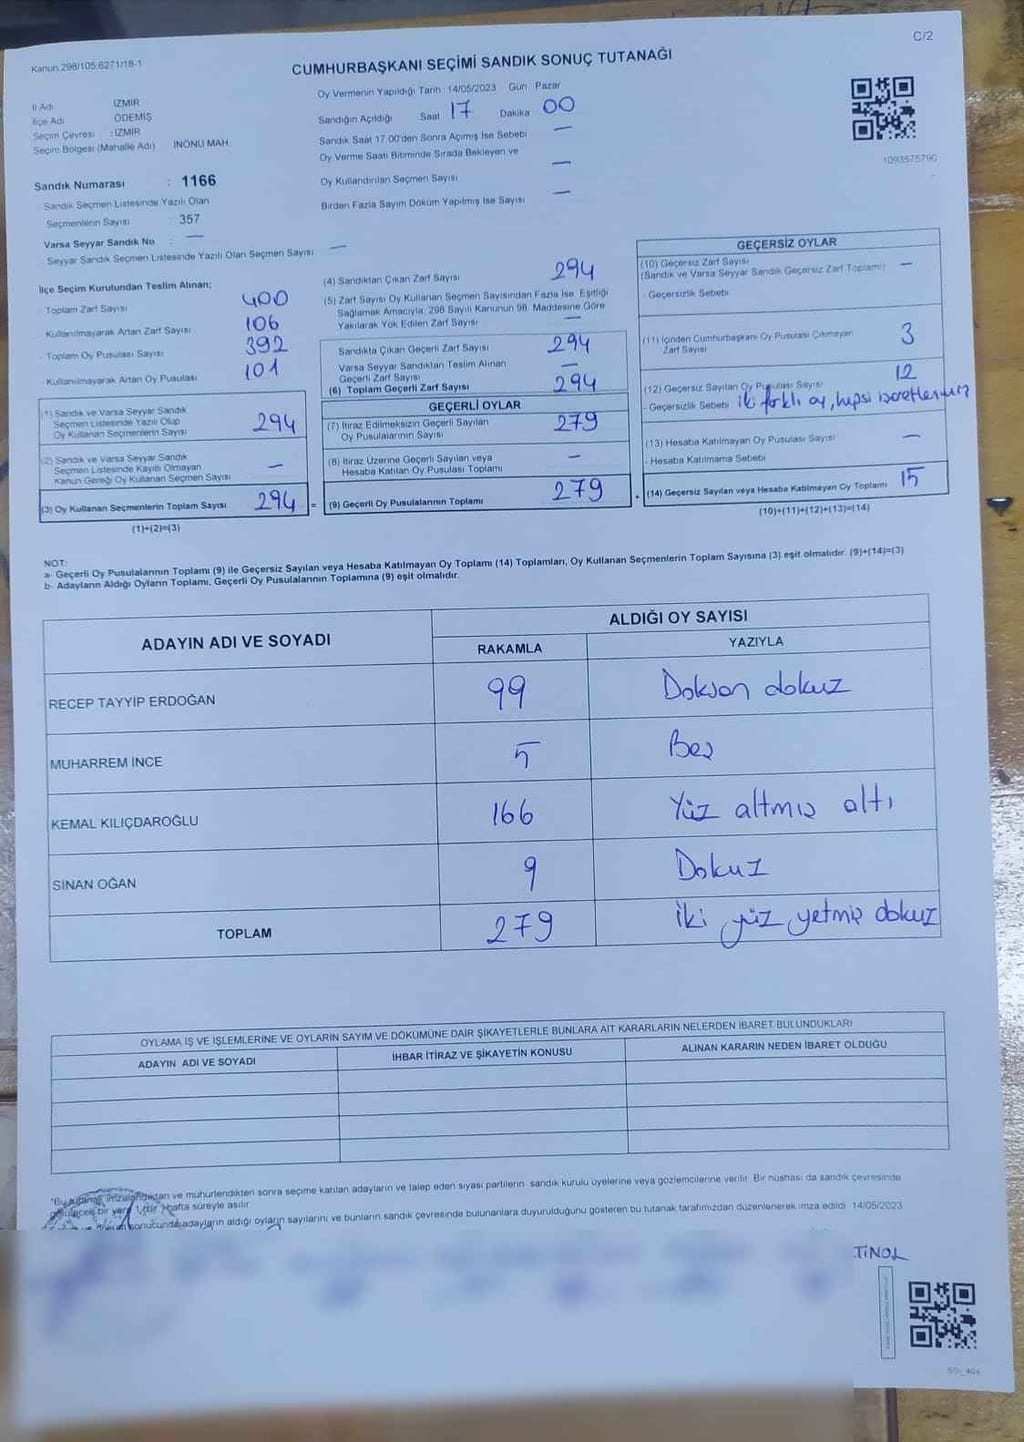 C/2
Kanun 298/105 6271/18-1
CUMHURBAŞKANI SEÇİMİ SANDIK SONUÇ TUTANAĞI
İl Adı İZMİR
İlçe Adı ÖDEMİŞ
Seçim Çevresi : İZMİR
Seçim Bölgesi (Mahalle Adı) İNÖNÜ MAH.
Sandık Numarası : 1166
Sandık Seçmen Listesinde Yazılı Olan
Seçmenlerin Sayısı : 357
Varsa Seyyar Sandık No : —
Seyyar Sandık Seçmen Listesinde Yazılı Olan Seçmen Sayısı —
Oy Vermenin Yapıldığı Tarih 14/05/2023 Gün Pazar
Sandığın Açıldığı Saat 17 Dakika 00
Sandık Saat 17.00'den Sonra Açımış İse Sebebi —
Oy Verme Saati Bitiminde Sırada Bekleyen ve
Oy Kullandırılan Seçmen Sayısı —
Birden Fazla Sayım Döküm Yapılmış İse Sayısı —
1093575790
İlçe Seçim Kurulundan Teslim Alınan;
Toplam Zarf Sayısı 400
Kullanılmayarak Artan Zarf Sayısı 106
Toplam Oy Pusulası Sayısı 392
Kullanılmayarak Artan Oy Pusulası 101
(1) Sandık ve Varsa Seyyar Sandık
Seçmen Listesinde Yazılı Olup
Oy Kullanan Seçmenlerin Sayısı 294
(2) Sandık ve Varsa Seyyar Sandık
Seçmen Listesinde Kayıtlı Olmayan
Kanun Gereği Oy Kullanan Seçmen Sayısı —
(3) Oy Kullanan Seçmenlerin Toplam Sayısı 294 =
(1)+(2)=(3)
(4) Sandıktan Çıkan Zarf Sayısı 294
(5) Zarf Sayısı Oy Kullanan Seçmen Sayısından Fazla İse, Eşitliği
Sağlamak Amacıyla, 298 Sayılı Kanunun 98. Maddesine Göre
Yakılarak Yok Edilen Zarf Sayısı —
Sandıkta Çıkan Geçerli Zarf Sayısı 294
Varsa Seyyar Sandıktan Teslim Alınan
Geçerli Zarf Sayısı —
(6) Toplam Geçerli Zarf Sayısı 294
GEÇERLİ OYLAR
(7) İtiraz Edilmeksizin Geçerli Sayılan
Oy Pusulalarının Sayısı 279
(8) İtiraz Üzerine Geçerli Sayılan veya
Hesaba Katılan Oy Pusulası Toplamı —
(9) Geçerli Oy Pusulalarının Toplamı 279
GEÇERSİZ OYLAR
(10) Geçersiz Zarf Sayısı —
(Sandık ve Varsa Seyyar Sandık Geçersiz Zarf Toplamı)
- Geçersizlik Sebebi
(11) İçinden Cumhurbaşkanı Oy Pusulası Çıkmayan
Zarf Sayısı 3
(12) Geçersiz Sayılan Oy Pusulası Sayısı 12
- Geçersizlik Sebebi iki farklı oy, hepsi
(13) Hesaba Katılmayan Oy Pusulası Sayısı —
- Hesaba Katılmama Sebebi
(14) Geçersiz Sayılan veya Hesaba Katılmayan Oy Toplamı 15
(10)+(11)+(12)+(13)=(14)
NOT:
a- Geçerli Oy Pusulalarının Toplamı (9) ile Geçersiz Sayılan veya Hesaba Katılmayan Oy Toplamı (14) Toplamları, Oy Kullanan Seçmenlerin Toplam Sayısına (3) eşit olmalıdır. (9)+(14)=(3)
b- Adayların Aldığı Oyların Toplamı, Geçerli Oy Pusulalarının Toplamına (9) eşit olmalıdır.
ADAYIN ADI VE SOYADI ALDIĞI OY SAYISI
RAKAMLA YAZIYLA
RECEP TAYYİP ERDOĞAN 99 Doksan dokuz
MUHARREM İNCE 5 Beş
KEMAL KILIÇDAROĞLU 166 Yüz altmış altı
SİNAN OĞAN 9 Dokuz
TOPLAM 279 iki yüz yetmiş dokuz
OYLAMA İŞ VE İŞLEMLERİNE VE OYLARIN SAYIM VE DÖKÜMÜNE DAİR ŞİKAYETLERLE BUNLARA AİT KARARLARIN NELERDEN İBARET BULUNDUKLARI
ADAYIN ADI VE SOYADI İHBAR İTİRAZ VE ŞİKAYETİN KONUSU ALINAN KARARIN NEDEN İBARET OLDUĞU
*Bu tutanak imzalandıktan ve mühürlendikten sonra seçime katılan adayların ve talep eden siyasi partilerin sandık kurulu üyelerine veya gözlemcilerine verilir. Bir nüshası da sandık çevresinde
bir yere 1 (bir) hafta süreyle asılır.
sonucunda adayların aldığı oyların sayılarını ve bunların sandık çevresinde bulunanlara duyurulduğunu gösteren bu tutanak tarafımızdan düzenlenerek imza edildi. 14/05/2023